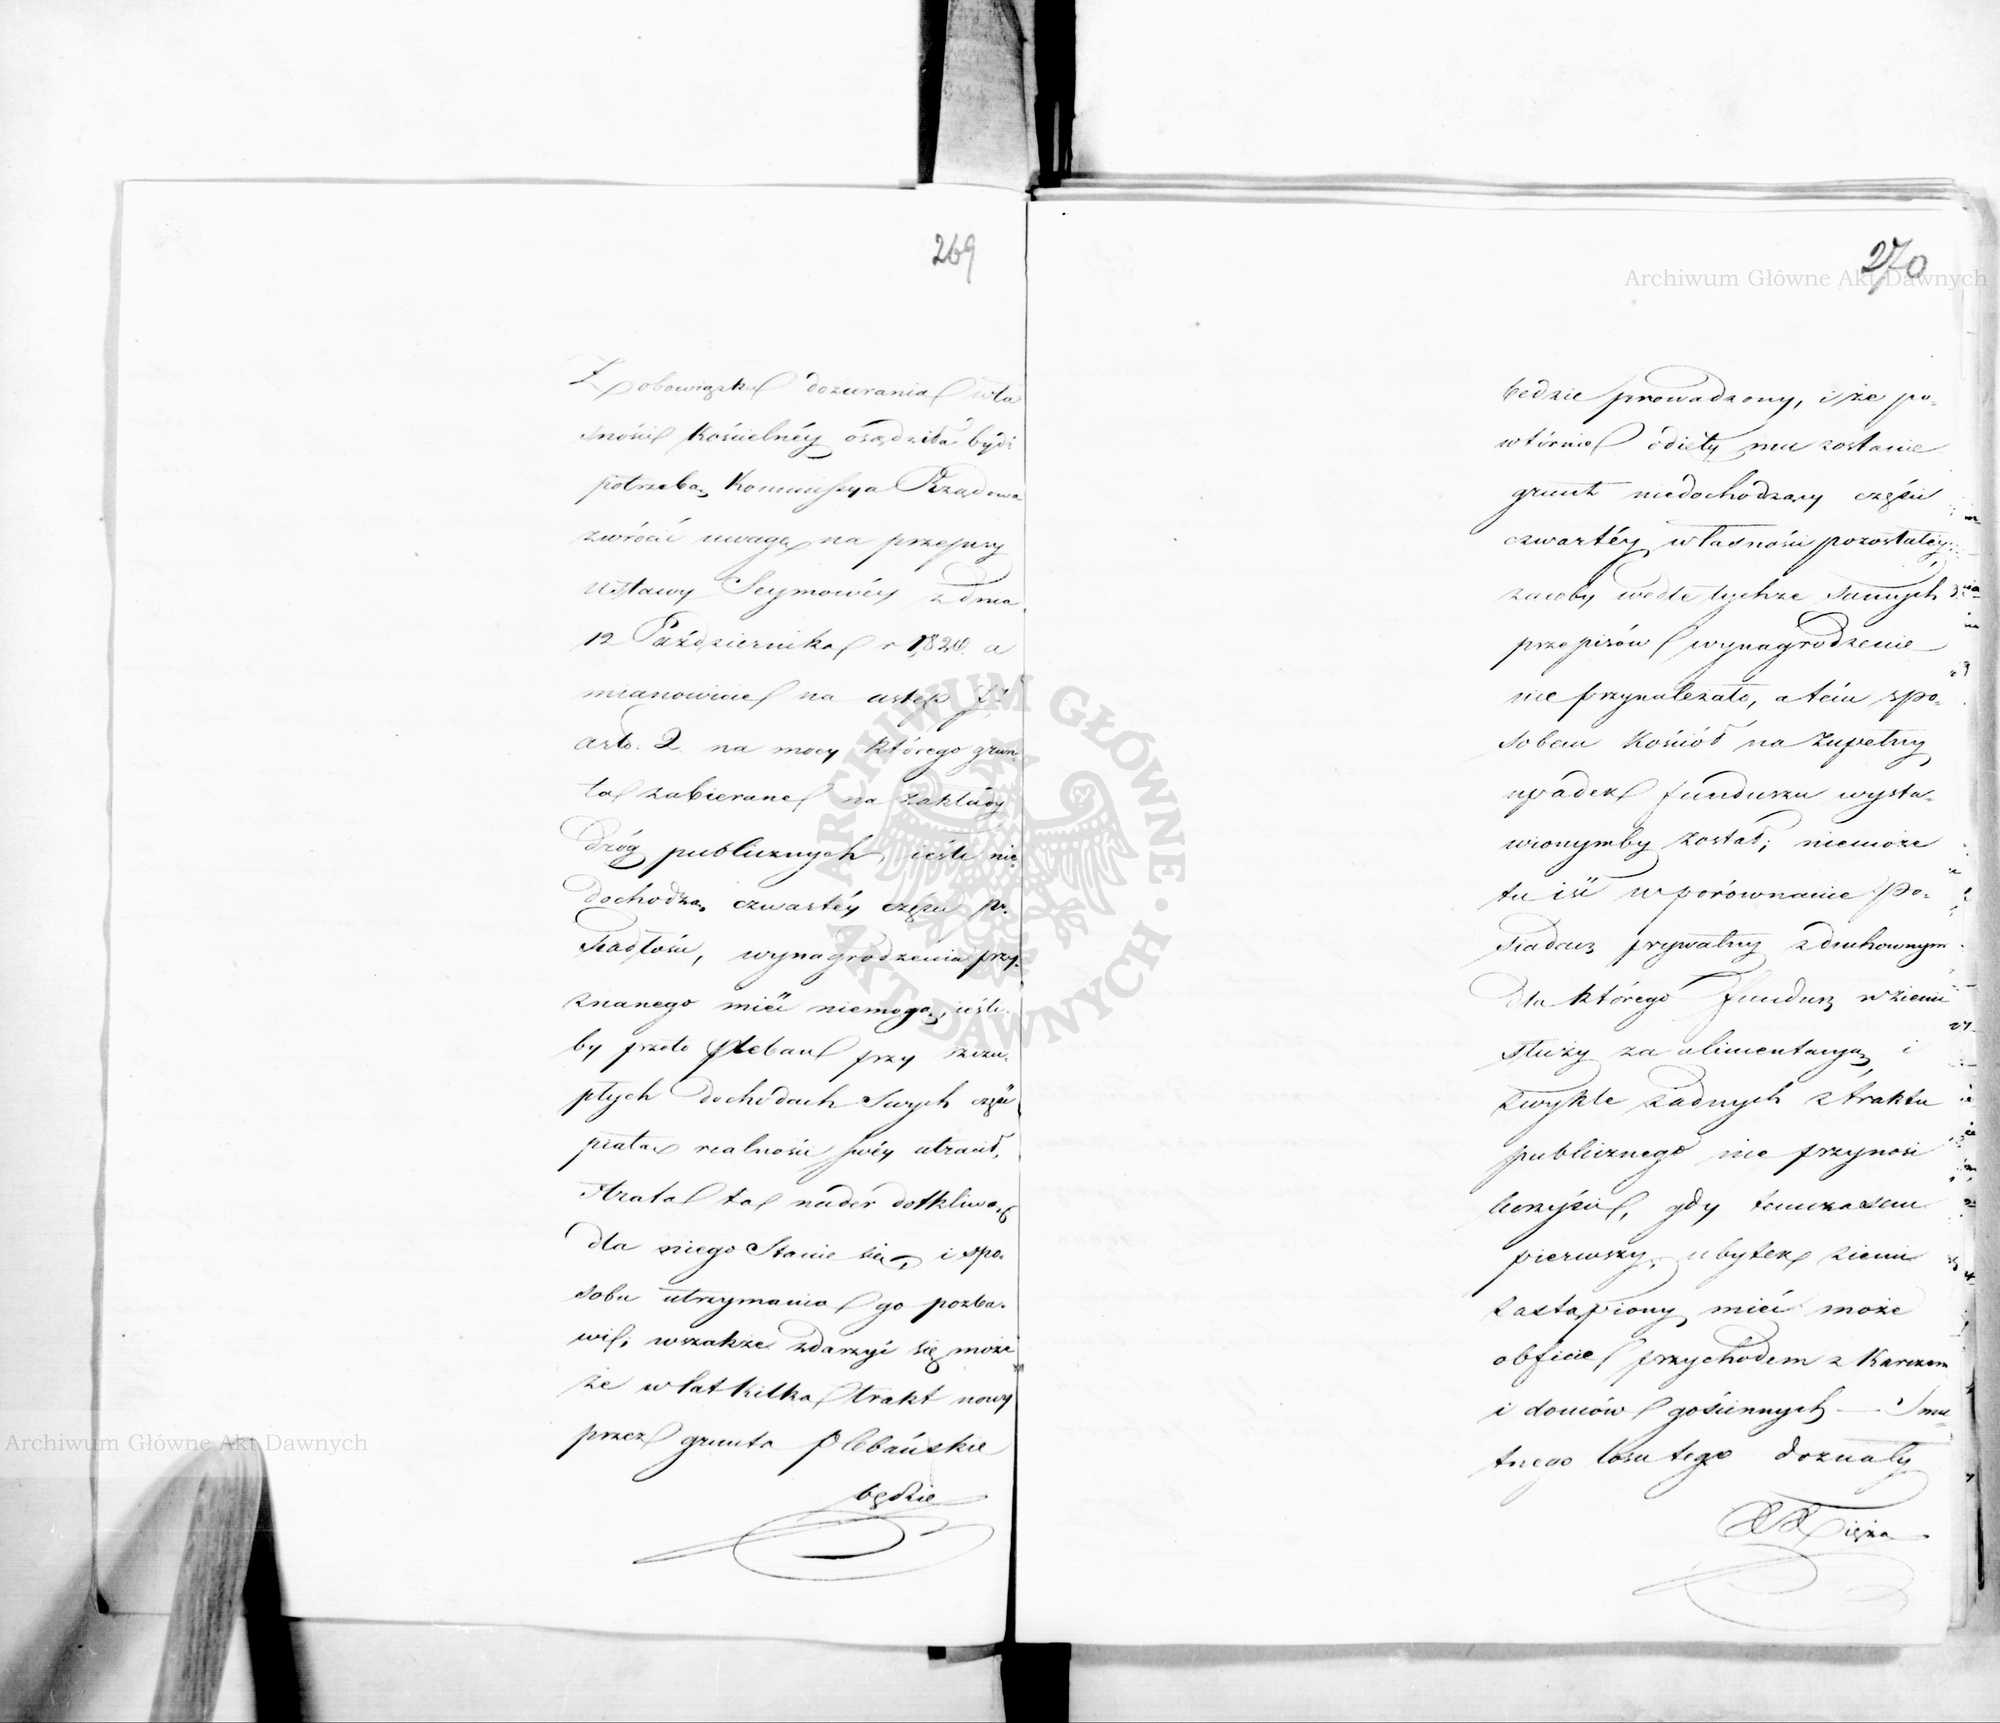 269
Z obowiązku dozierania wła
sności Kościelnéy osądziła bydź
potrzebą Kommissya Rządowa
zwrócić uwagę na przepisy
ustawy Seymowéy z dnia
12 Października r 1820. a
mianowicie na ustęp
arto. 2. na mocy którego grun
ta zabierane na zakłady
dróg publicznych, ieśli nie
dochodzą czwartéy części po-
siadłości, wynagrodzenia przy-
znanego mieć niemogą, ieśli-
by przeto pleban przy szczu-
płych dochodach swych część
piątą realności swéy utracił,
strata ta nader dotkliwą
dla niego stanie się, i spo-
sobu utrzymania go pozba-
wi, wszakże zdarzyć się może
że w lat kilka trakt nowy
przez grunta Plebańskie
będzie
270
będzie prowadzony, i że po-
wtórnie odięty mu zostanie
grunt niedochodzący części
czwartéy własności pozostałéy,
zacoby wedle tychże samych
przepisów wynagrodzenie
nie przynależało, a tém spo-
sobem Kościół na zupełny
upadek funduszu wysta-
wionymby został; niemoże
tu iść w porównanie po-
siadacz prywatny z duchownym
dla którego fundusz w ziemi
służy za alimentacyą, i
zwykle żadnych z traktu
publicznego nie przynosi
korzyści, gdy tymczasem
pierwszy, ubytek ziemi
zastąpiony mieć może
obficie przychodem z Karczem
i domów gościnnych — Smu-
tnego losu tego doznały
XXięża
Archiwum Główne Akt Dawnych
Archiwum Główne Akt Dawnych
ARCHIWUM GŁÓWNE AKT DAWNYCH